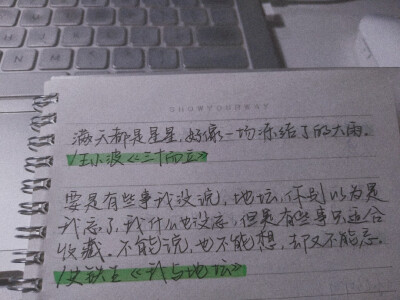 SHOW YOUR WAY
满天都是星星,好像一场冻结了的大雨。
/王小波《三十而立》
要是有些事我没说,地坛,你别以为是
我忘了,我什么也没忘,但是有些事只适合
收藏。不能说,也不能想,却又不能忘。
/史铁生《我与地坛》